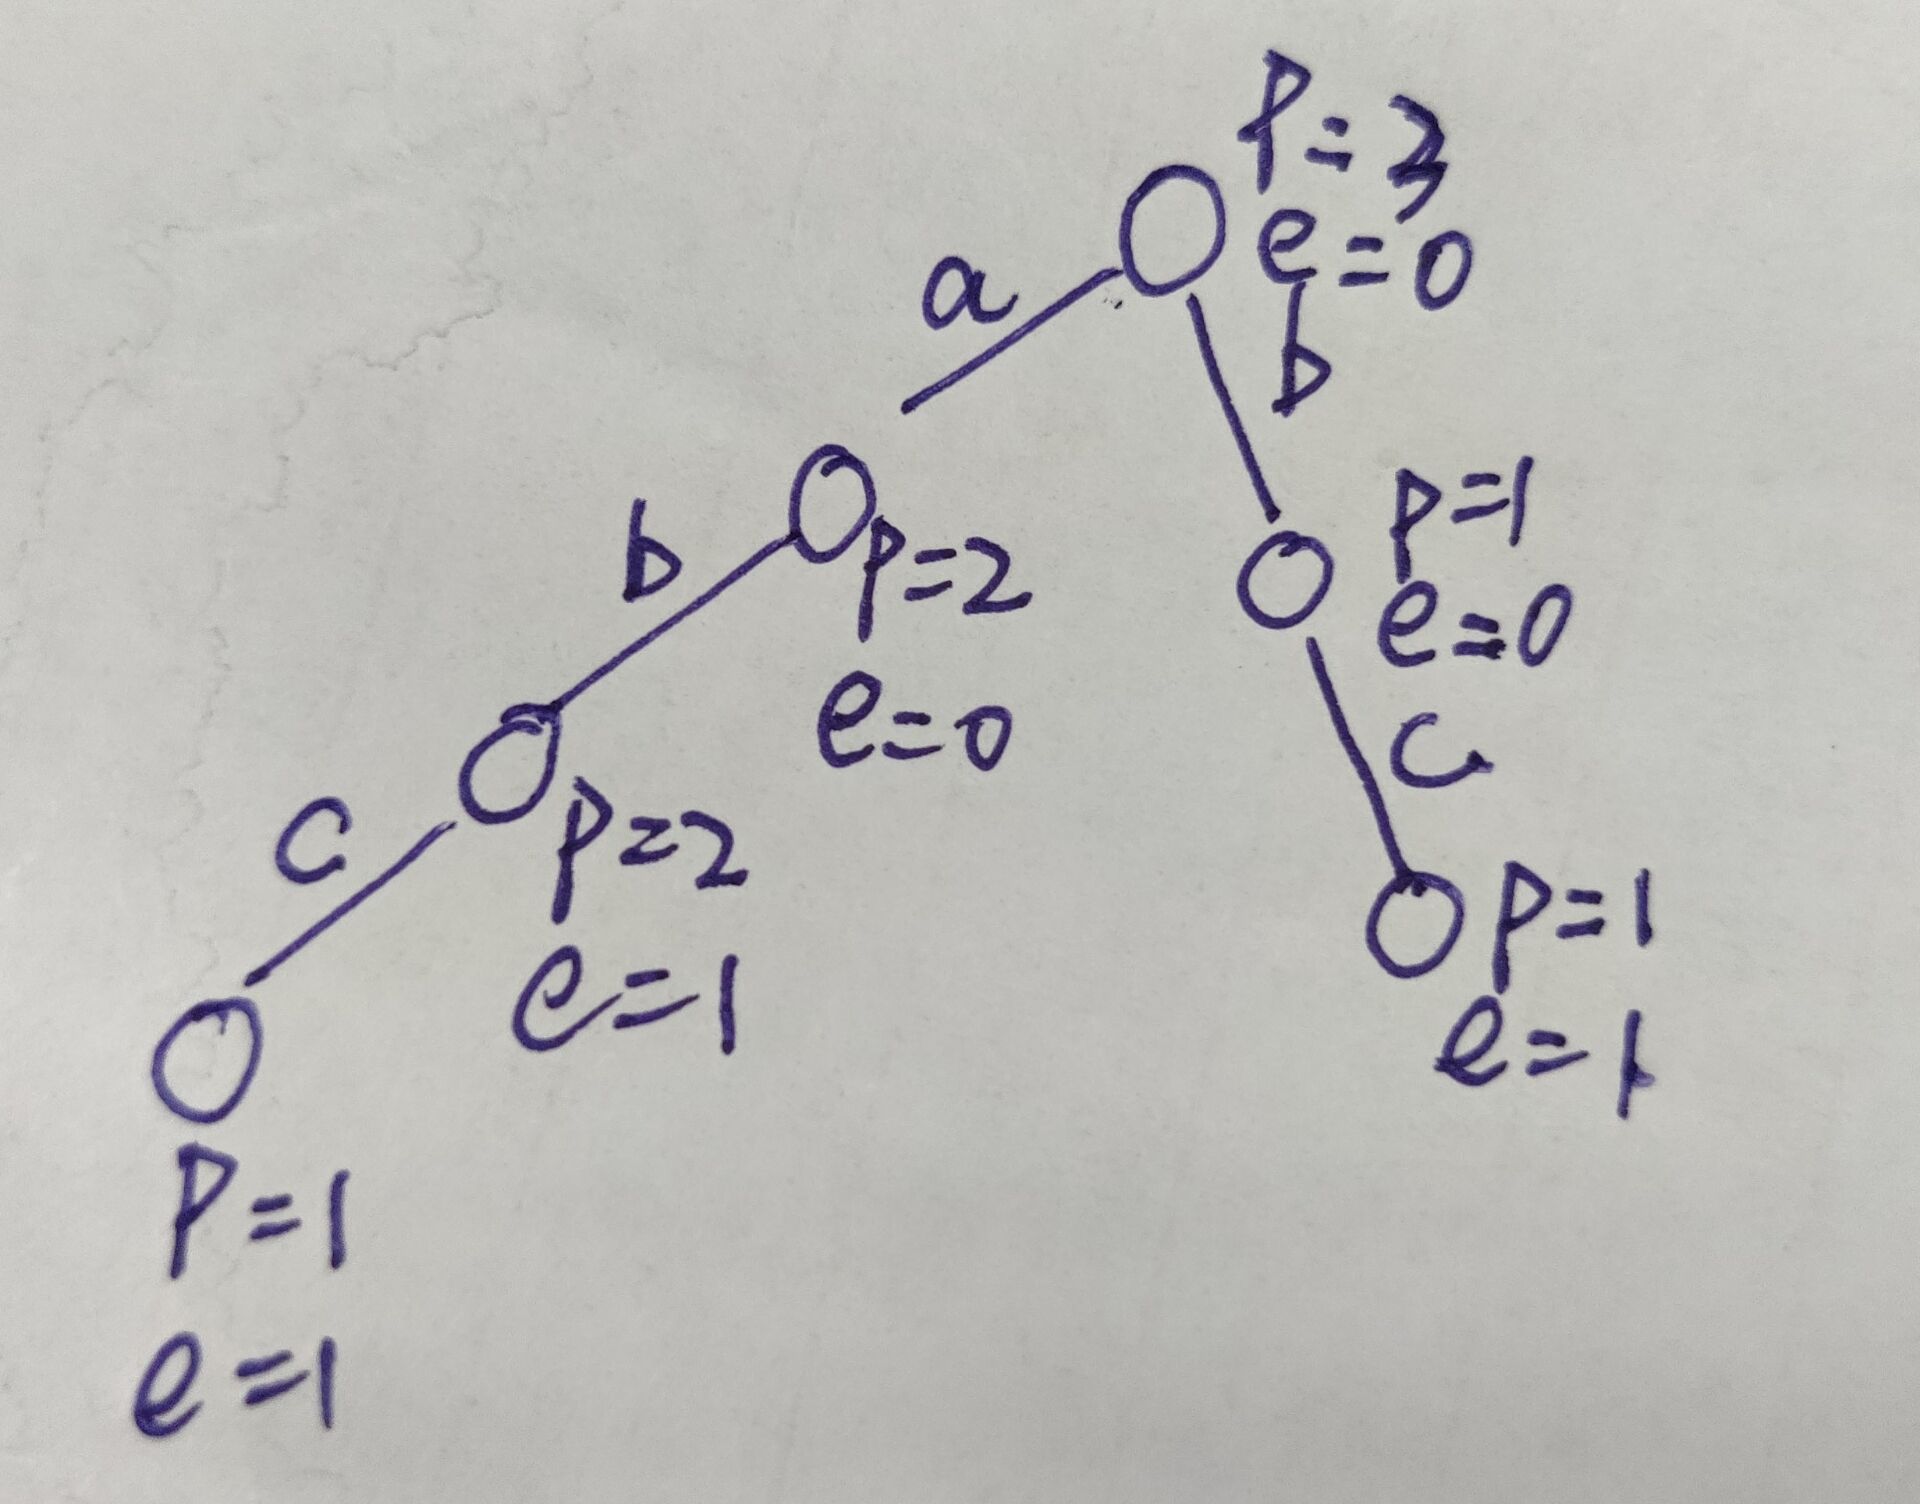 P=3
e=0
a
b
b
P=2
e=0
P=1
e=0
c
P=2
e=1
c
P=1
e=1
P=1
e=1